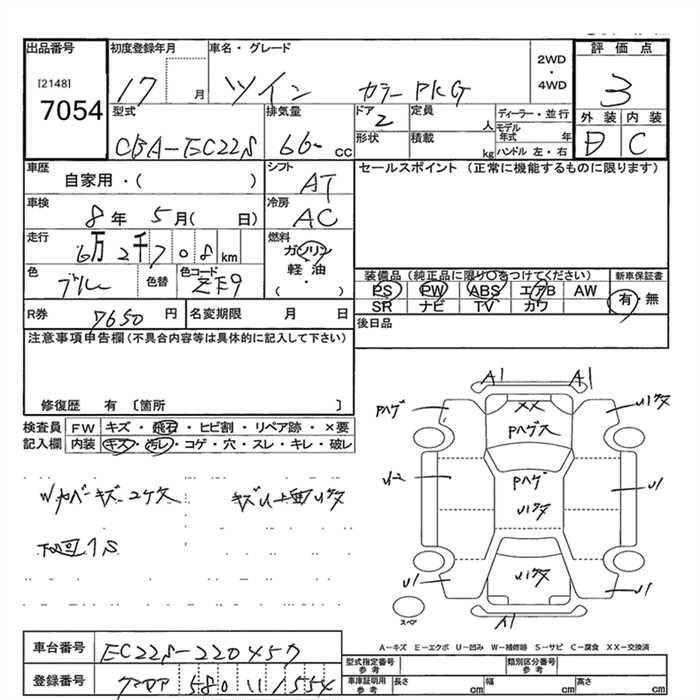 出品番号 初度登録年月 車名・グレード 評価点
[2148]
7054
17 月 ツイン カラーPKG 2WD・4WD 3
型式 排気量 ドア 定員 ディーラー・並行 外装 内装
CBA-EC22S 66- cc 2 人 モデル年式 年 D C
形状 積載 kg ハンドル 左・右
車歴 シフト セールスポイント (正常に機能するものに限ります)
自家用・( ) AT
車検 冷房
8年 5月( 日) AC
走行 燃料
6万2千708km ガソリン
軽油
( )
色 色替 色コード
ブルー ZF9
装備品(純正品に限り○をつけてください) 新車保証書
PS PW ABS エアB AW 有・無
SR ナビ TV カワ
R券 7650円 名変期限 月 日 後日品
注意事項申告欄(不具合内容等は具体的に記入して下さい)
修復歴 有 〔箇所 〕
検査員 FW キズ・飛石・ヒビ割・リペア跡・×要
記入欄 内装 キズ・汚レ・コゲ・穴・スレ・キレ・破レ
A1 A1
Pハゲ U1ケタ
XX
Pハゲ大
U2 Pハゲ U1
U1ケタ
U1ケタ
U1 U1
A1
スペア
A-キズ E-エクボ U-凹み W-補修跡 S-サビ C-腐食 XX-交換済
車台番号 EC22S-220457
登録番号 580 11 1554
型式指定番号 参考 類別区分番号 参考
車庫証明用 参考 長さ cm 幅 cm 高さ cm